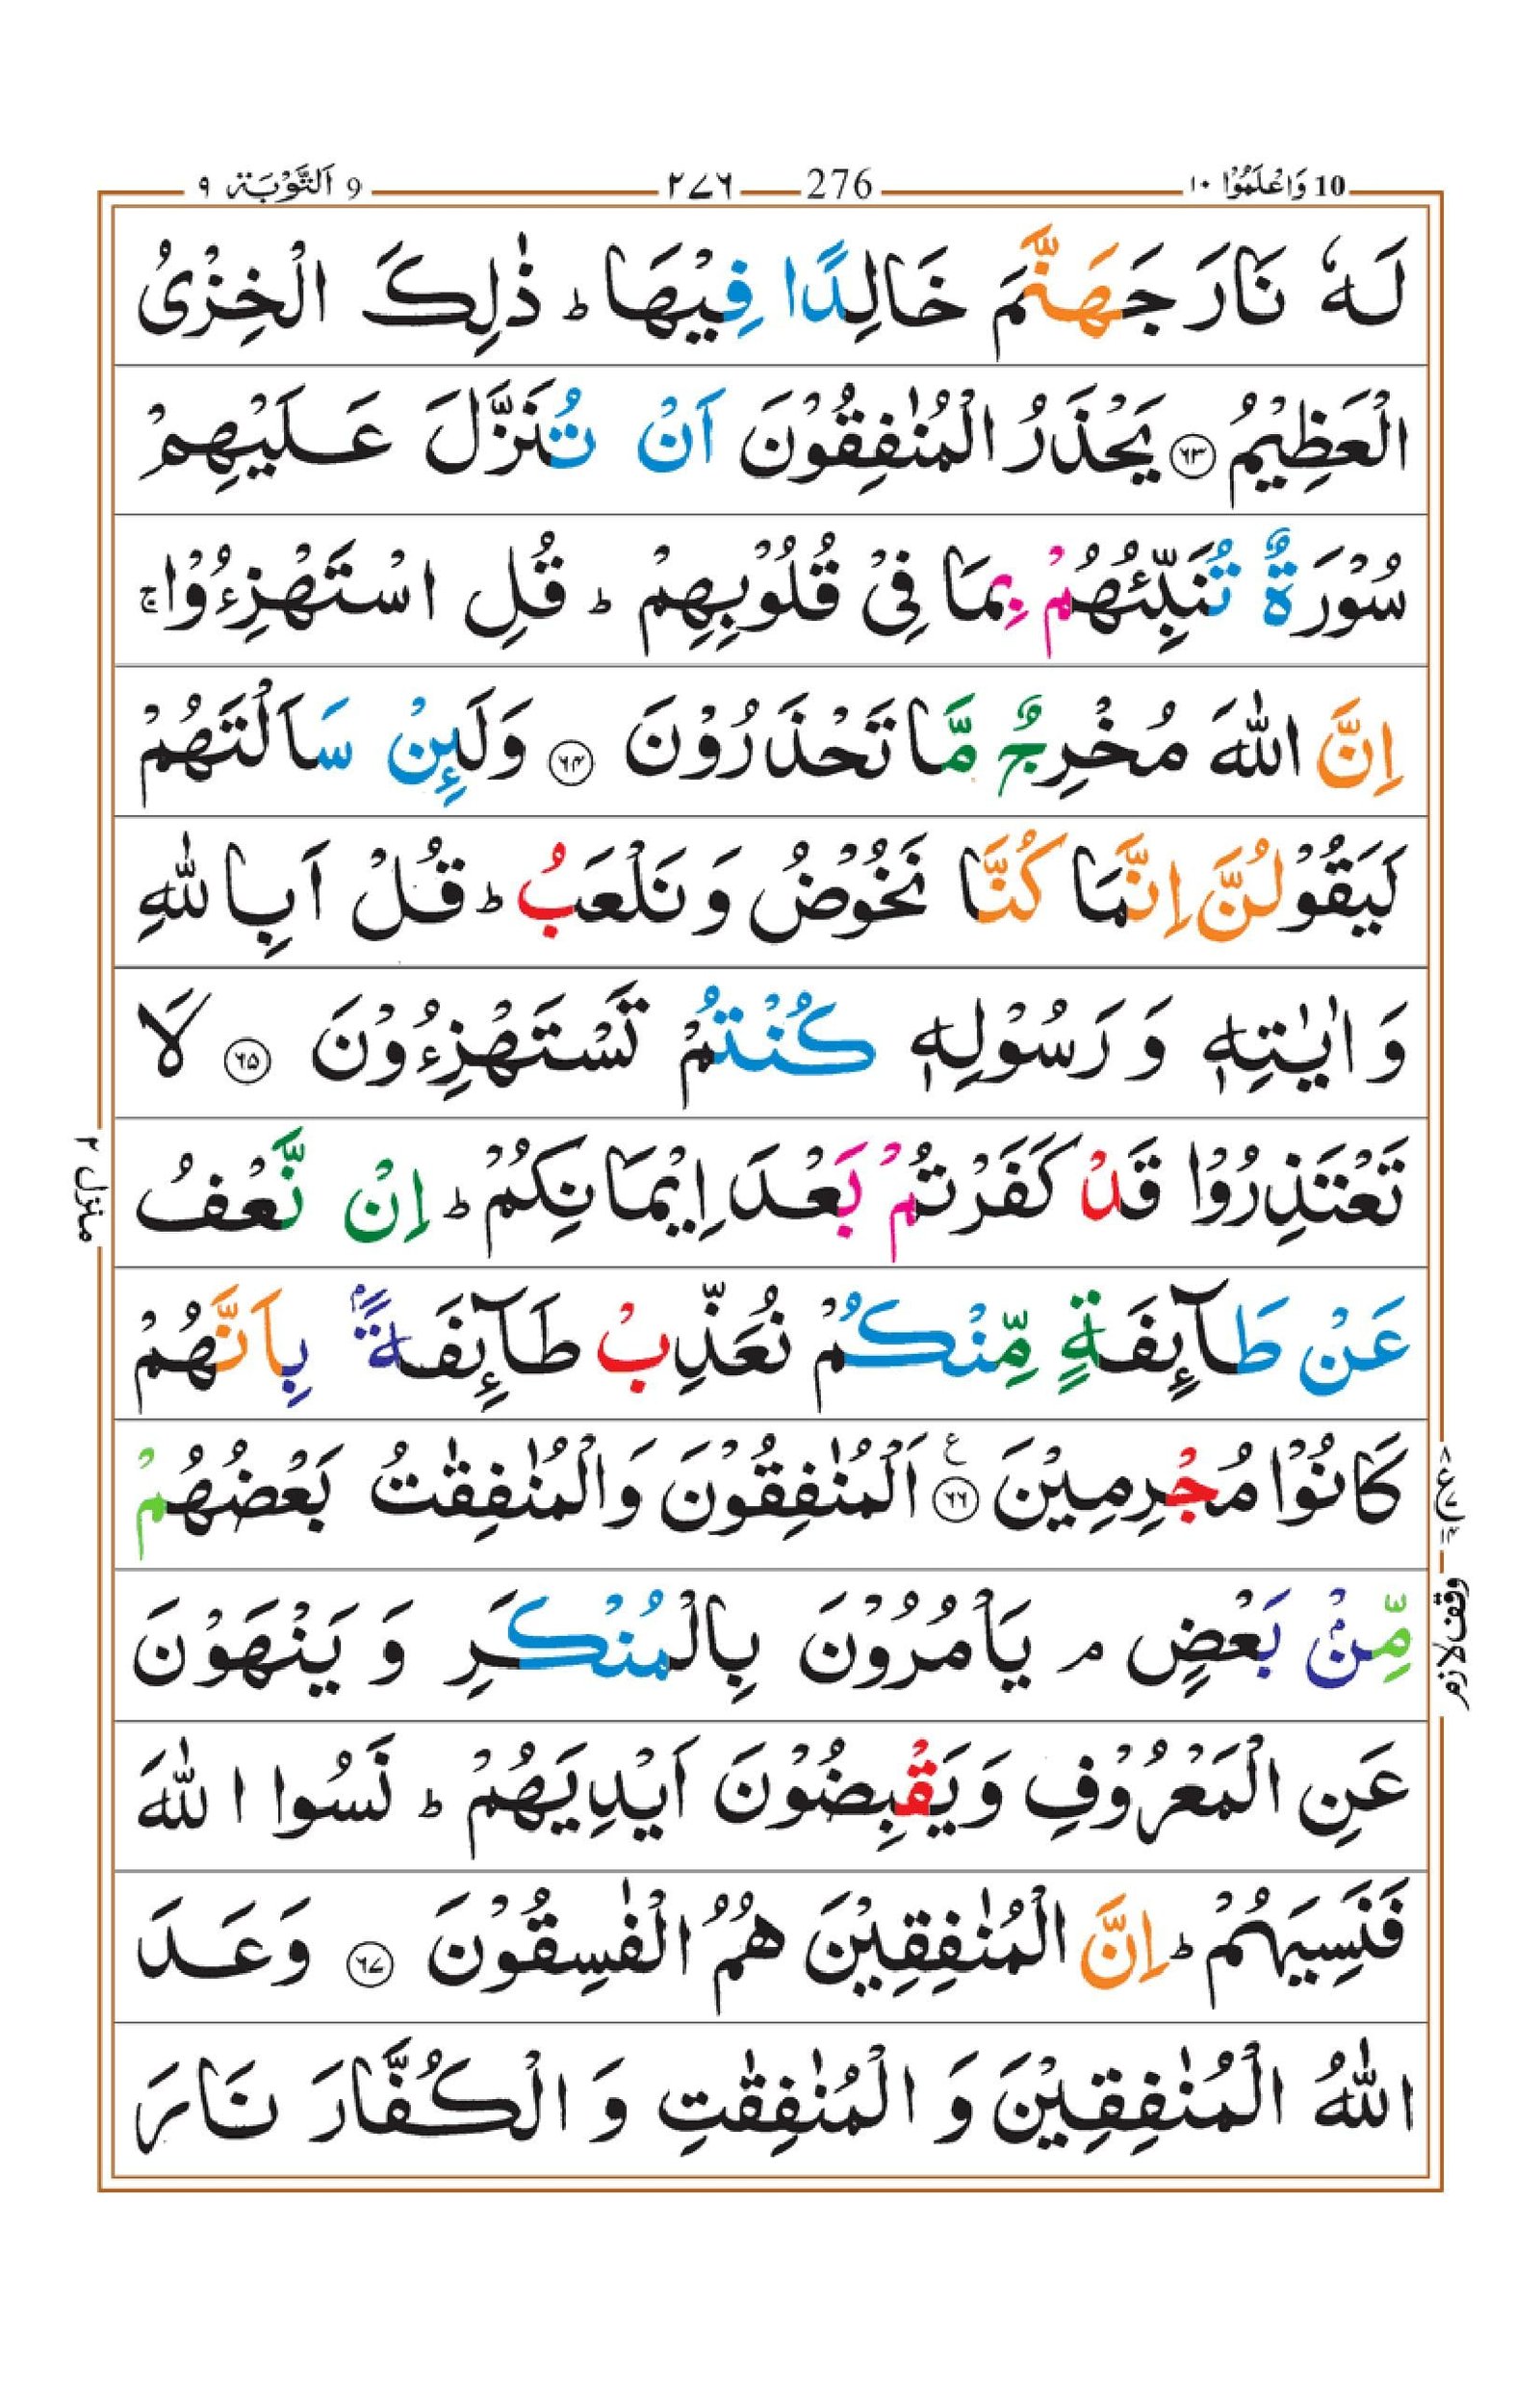 10 وَاعْلَمُوْۤا ۱۰ 276 ۲۷۶ 9 اَلتَّوْبَة ۹
لَهٗ نَارَ جَهَنَّمَ خَالِدًا فِيْهَا ؕ ذٰلِكَ الْخِزْىُ
الْعَظِيْمُ ۶۳ يَحْذَرُ الْمُنٰفِقُوْنَ اَنْ تُنَزَّلَ عَلَيْهِمْ
سُوْرَةٌ تُنَبِّئُهُمْ بِمَا فِىْ قُلُوْبِهِمْ ؕ قُلِ اسْتَهْزِءُوْا ۚ
اِنَّ اللّٰهَ مُخْرِجٌ مَّا تَحْذَرُوْنَ ۶۴ وَلَئِنْ سَاَلْتَهُمْ
لَيَقُوْلُنَّ اِنَّمَا كُنَّا نَخُوْضُ وَ نَلْعَبُ ؕ قُلْ اَبِاللّٰهِ
وَ اٰيٰتِهٖ وَ رَسُوْلِهٖ كُنْتُمْ تَسْتَهْزِءُوْنَ ۶۵ لَا
تَعْتَذِرُوْا قَدْ كَفَرْتُمْ بَعْدَ اِيْمَانِكُمْ ؕ اِنْ نَّعْفُ
عَنْ طَآئِفَةٍ مِّنْكُمْ نُعَذِّبْ طَآئِفَةًۢ بِاَنَّهُمْ
كَانُوْا مُجْرِمِيْنَ ۶۶ ع اَلْمُنٰفِقُوْنَ وَالْمُنٰفِقٰتُ بَعْضُهُمْ
مِّنْۢ بَعْضٍ ۘ يَاْمُرُوْنَ بِالْمُنْكَرِ وَ يَنْهَوْنَ
عَنِ الْمَعْرُوْفِ وَيَقْبِضُوْنَ اَيْدِيَهُمْ ؕ نَسُوا اللّٰهَ
فَنَسِيَهُمْ ؕ اِنَّ الْمُنٰفِقِيْنَ هُمُ الْفٰسِقُوْنَ ۶۷ وَعَدَ
اللّٰهُ الْمُنٰفِقِيْنَ وَ الْمُنٰفِقٰتِ وَ الْكُفَّارَ نَارَ
منزل ۲
ع
وقف لازم